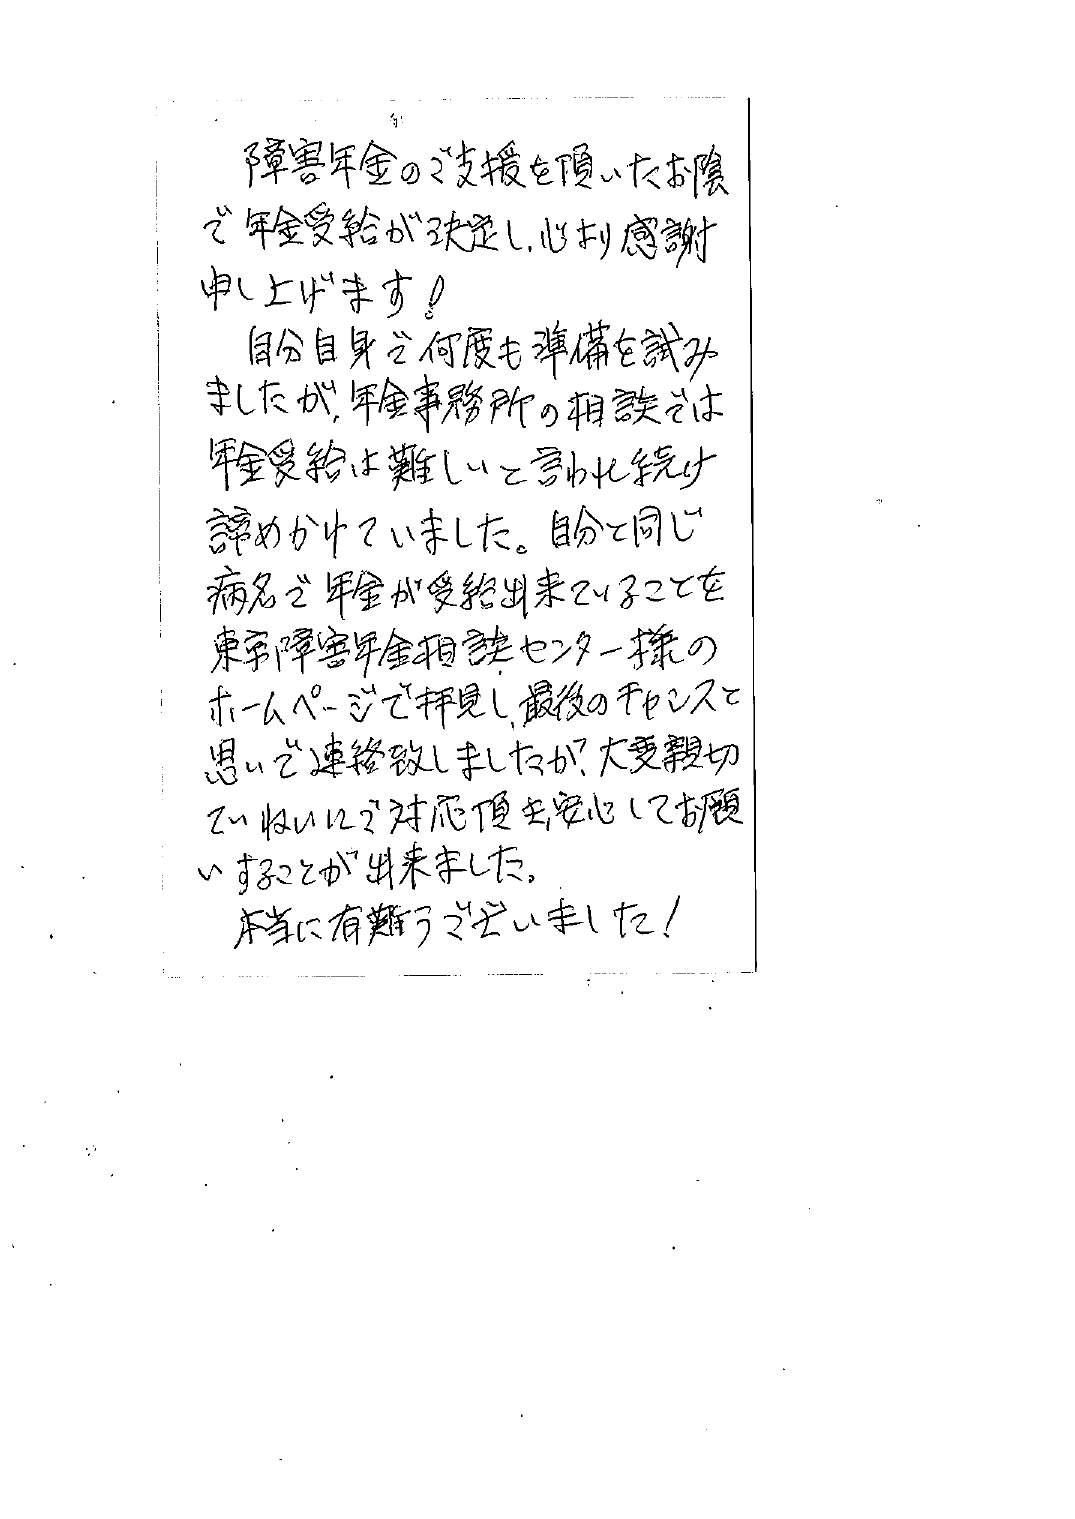 障害年金のご支援を頂いたお陰
で年金受給が決定し、心より感謝
申し上げます！
自分自身で何度も準備を試み
ましたが、年金事務所の相談では
年金受給は難しいと言われ続け
諦めかけていました。自分と同じ
病名で年金が受給出来ていることを
東京障害年金相談センター様の
ホームページで拝見し、最後のチャンスと
思いで連絡致しましたが、大変親切
ていねいにご対応頂き、安心してお願
いすることが出来ました。
本当に有難うございました！